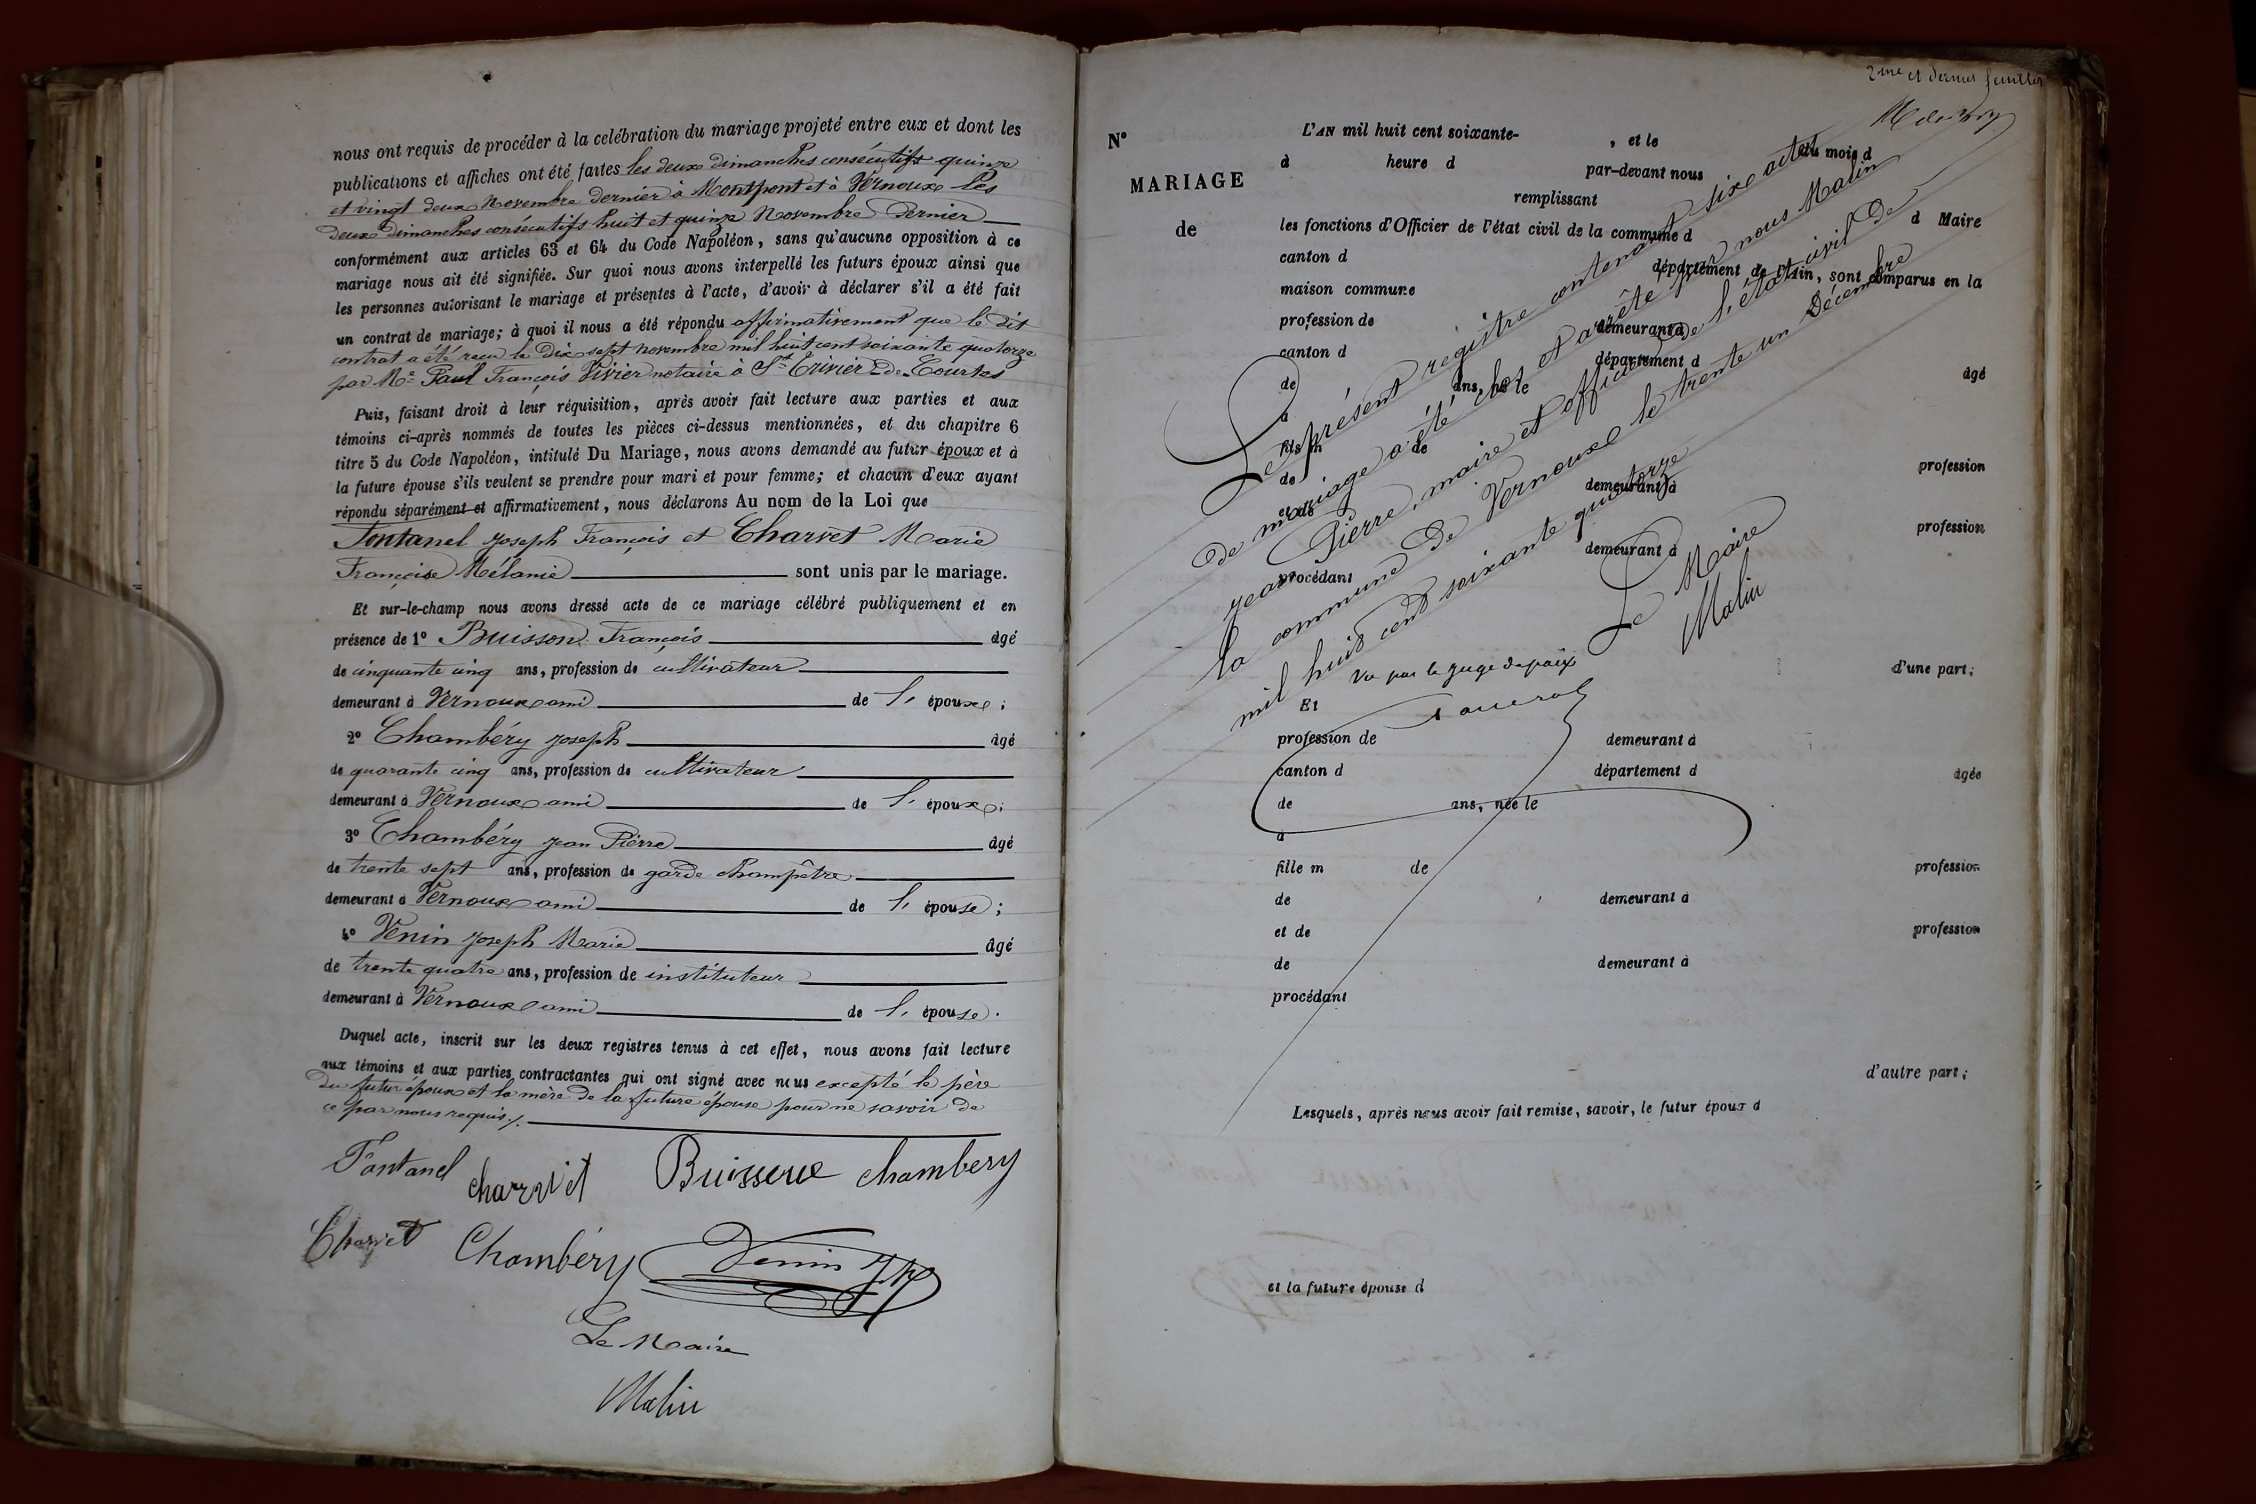 nous ont requis de procéder à la celébration du mariage projeté entre eux et dont les
publications et affiches ont été faites les deux dimanches consécutifs quinze
et vingt deux Novembre dernier à Montpont et à Vernoux les
deux dimanches consécutifs huit et quinze Novembre dernier
conformément aux articles 63 et 64 du Code Napoléon, sans qu'aucune opposition à ce
mariage nous ait été signifiée. Sur quoi nous avons interpellé les futurs époux ainsi que
les personnes autorisant le mariage et présentes à l'acte, d'avoir à déclarer s'il a été fait
un contrat de mariage; à quoi il nous a été répondu affirmativement que le dit
contrat a été reçu le dix sept novembre mil huit cent soixante quatorze
par Me Paul François Vivier notaire à St Trivier de Courtes
Puis, faisant droit à leur réquisition, après avoir fait lecture aux parties et aux
témoins ci-après nommés de toutes les pièces ci-dessus mentionnées, et du chapitre 6
titre 5 du Code Napoléon, intitulé Du Mariage, nous avons demandé au futur époux et à
la future épouse s'ils veulent se prendre pour mari et pour femme; et chacun d'eux ayant
répondu séparément et affirmativement, nous déclarons Au nom de la Loi que
Fontanel Joseph François et Charvet Marie
Françoise Mélanie sont unis par le mariage.
Et sur-le-champ nous avons dressé acte de ce mariage célébré publiquement et en
présence de 1° Buisson François âgé
de cinquante cinq ans, profession de cultivateur
demeurant à Vernoux ami de l' époux;
2° Chambéry Joseph âgé
de quarante cinq ans, profession de cultivateur
demeurant à Vernoux ami de l' époux;
3° Chambéry Jean Pierre âgé
de trente sept ans, profession de garde champêtre
demeurant à Vernoux ami de l' épouse;
4° Venin Joseph Marie âgé
de trente quatre ans, profession de instituteur
demeurant à Vernoux ami de l' épouse.
Duquel acte, inscrit sur les deux registres tenus à cet effet, nous avons fait lecture
aux témoins et aux parties contractantes qui ont signé avec nous excepté le père
du futur époux et la mère de la future épouse pour ne savoir de
ce par nous requis /.
Fontanel charvet Buisson chambery
Charvet Chambéry Venin
Le Maire
Malin
2me et dernier feuillet
N°
MARIAGE
de
L'AN mil huit cent soixante- , et le
du mois d
à heure d par-devant nous
remplissant
les fonctions d'Officier de l'état civil de la commune d
d Maire
canton d département de l'Ain, sont comparus en la
maison commune
profession de demeurant à
canton d département d
âgé
de ans, né le
à
fils m de
profession
de demeurant à
et de
profession
demeurant à
procédant
d'une part;
Le présent registre contenant six actes
de mariage a été clos et arrêté par nous Malin
Jean Pierre, maire et officier de l'état civil de
la commune de Vernoux le trente un Décembre
mil huit cent soixante quatorze
Le Maire
Malin
Vu par le Juge de paix
Et
profession de demeurant à
canton d département d
âgée
de ans, née le
à
fille m de
profession
de demeurant à
et de
profession
de demeurant à
procédant
d'autre part;
Lesquels, après nous avoir fait remise, savoir, le futur époux d
et la future épouse d